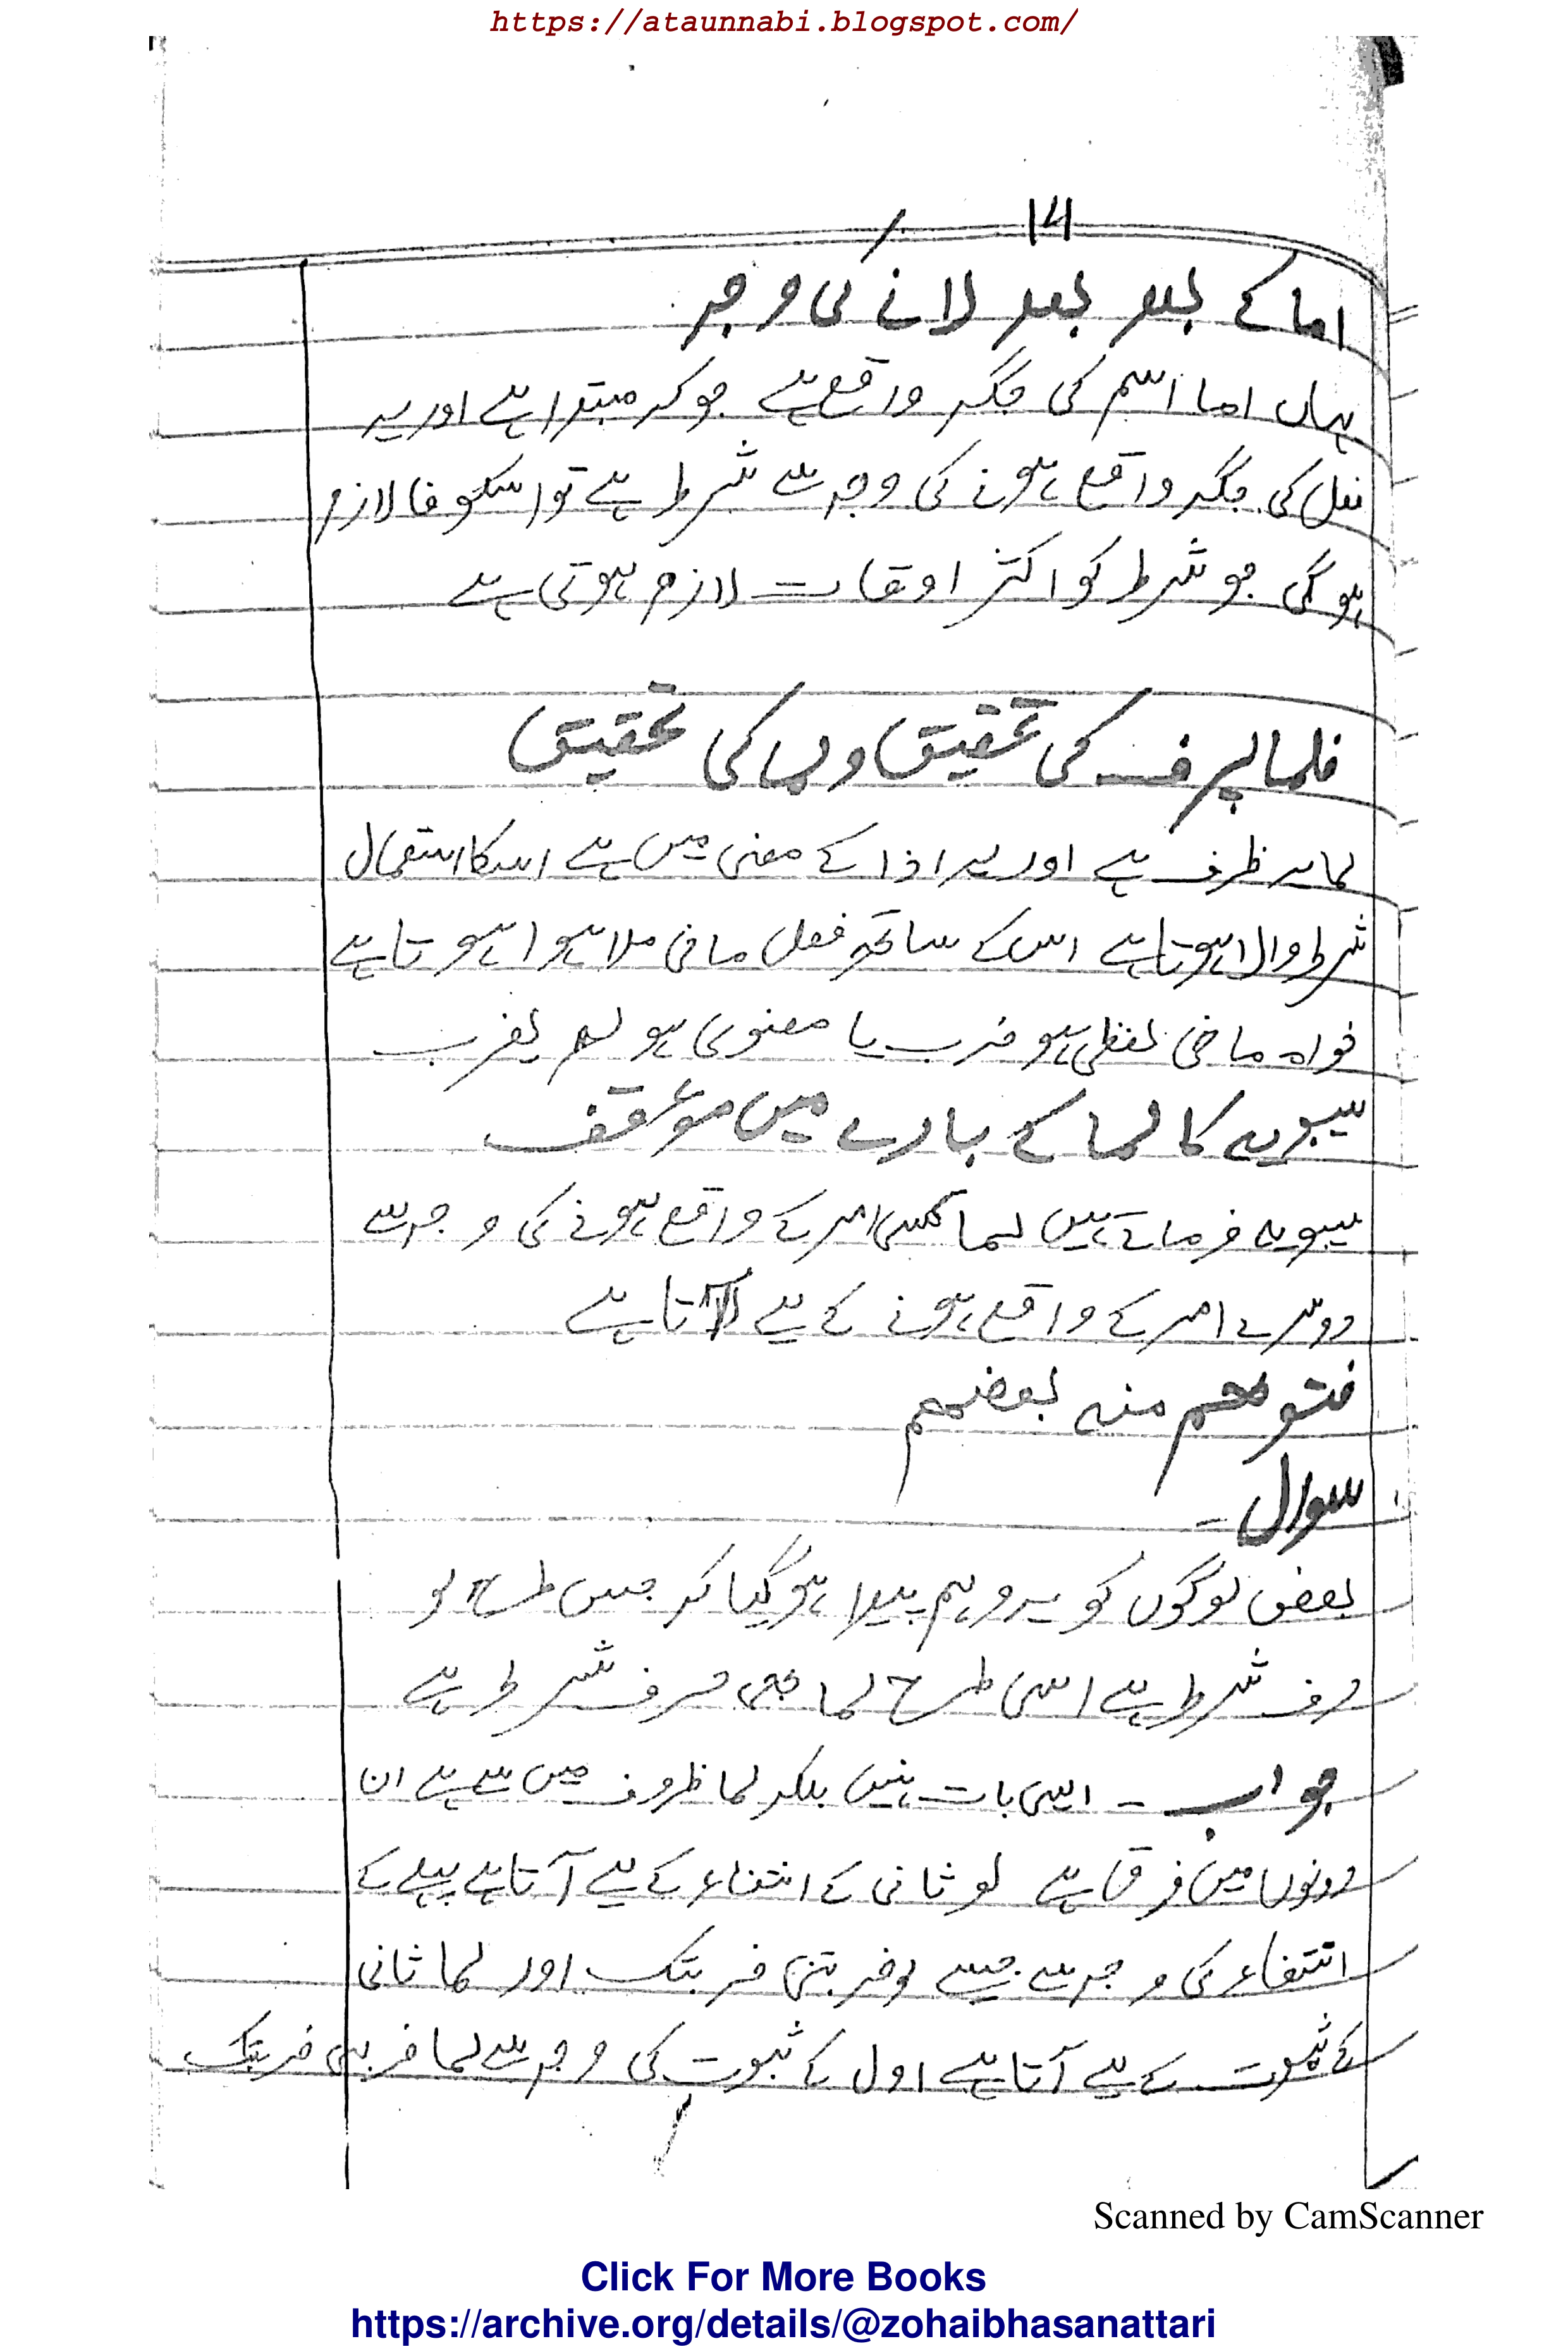 https://ataunnabi.blogspot.com/
14
اما کے بعد بعد لانے کی وجہ
یہاں اما اسم کی جگہ واقع ہے جو کہ مبتدا ہے اور یہ
فعل کی جگہ واقع ہونے کی وجہ سے شرط ہے تو اسکو فا لازم
ہو گی جو شرط کو اکثر اوقات لازم ہوتی ہے
فلما لم کی تحقیق و لما کی تحقیق
لما یہ ظرف ہے اور یہ اذا کے معنی میں ہے اسکا استعمال
شرط والا ہوتا ہے اس کے ساتھ فعل ماضی ملا ہوا ہوتا ہے
خواہ ماضی لفظی ہو ضرب یا معنوی ہو لم یضرب
سیبویہ کا لما کے بارے میں موءقف
سیبویہ فرماتے ہیں لما کسی امر کے واقع ہونے کی وجہ سے
دوسرے امر کے واقع ہونے کے لیے آتا ہے
فتوھم منہ بعضھم
سوال -
بعض لوگوں کو یہ وہم پیدا ہو گیا کہ جس طرح لو
حرف شرط ہے اسی طرح لما بھی حرف شرط ہے
جواب - ایسی بات نہیں بلکہ لما ظروف میں سے ہے ان
دونوں میں فرق ہے لو ثانی کے انتفاء کے لیے آتا ہے پہلے کے
انتفاء کی وجہ سے جیسے لو ضربتنی ضربتک اور لما ثانی
کے ثبوت کے لیے آتا ہے اول کے ثبوت کی وجہ سے لما ضربنی ضربتک
Scanned by CamScanner
Click For More Books
https://archive.org/details/@zohaibhasanattari